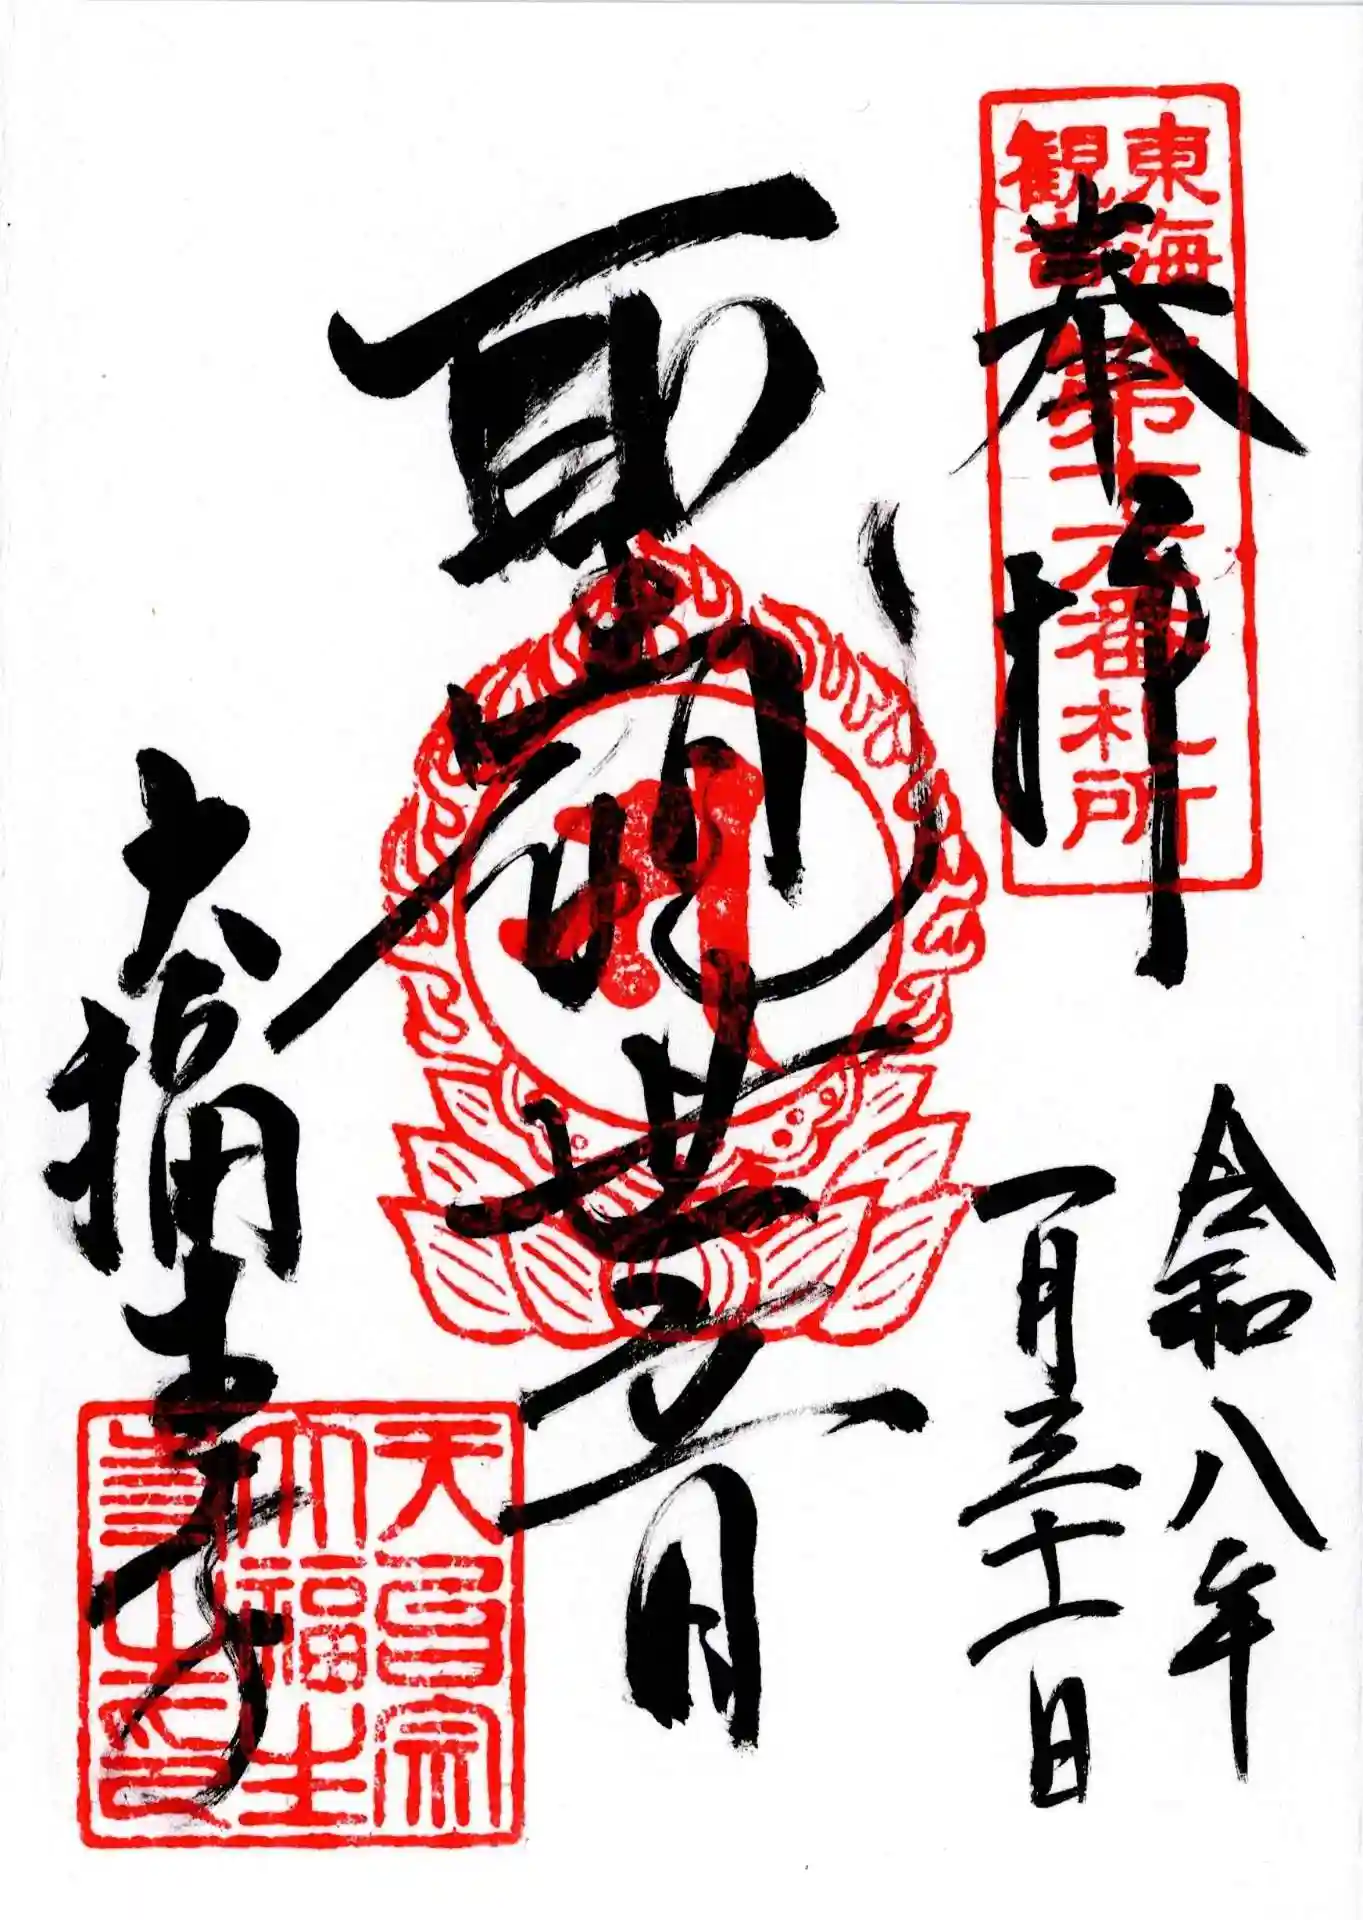 東海
観音
第十六番札所
奉拝
令和八年
一月三十一日
聖観世音
大福生寺
天台宗
大福生
寺之印